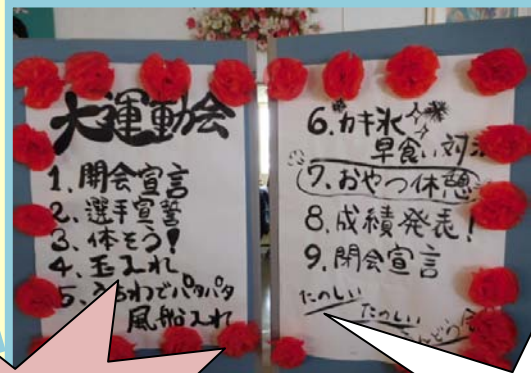 大運動会
1.開会宣言
2.選手宣誓
3.体そう!
4.玉入れ
5.うちわでパタパタ
風船入れ
6.カキ氷
早食い対決
7.おやつ休憩
8.成績発表!
9.閉会宣言
たのしい
たのしい
うんどう会